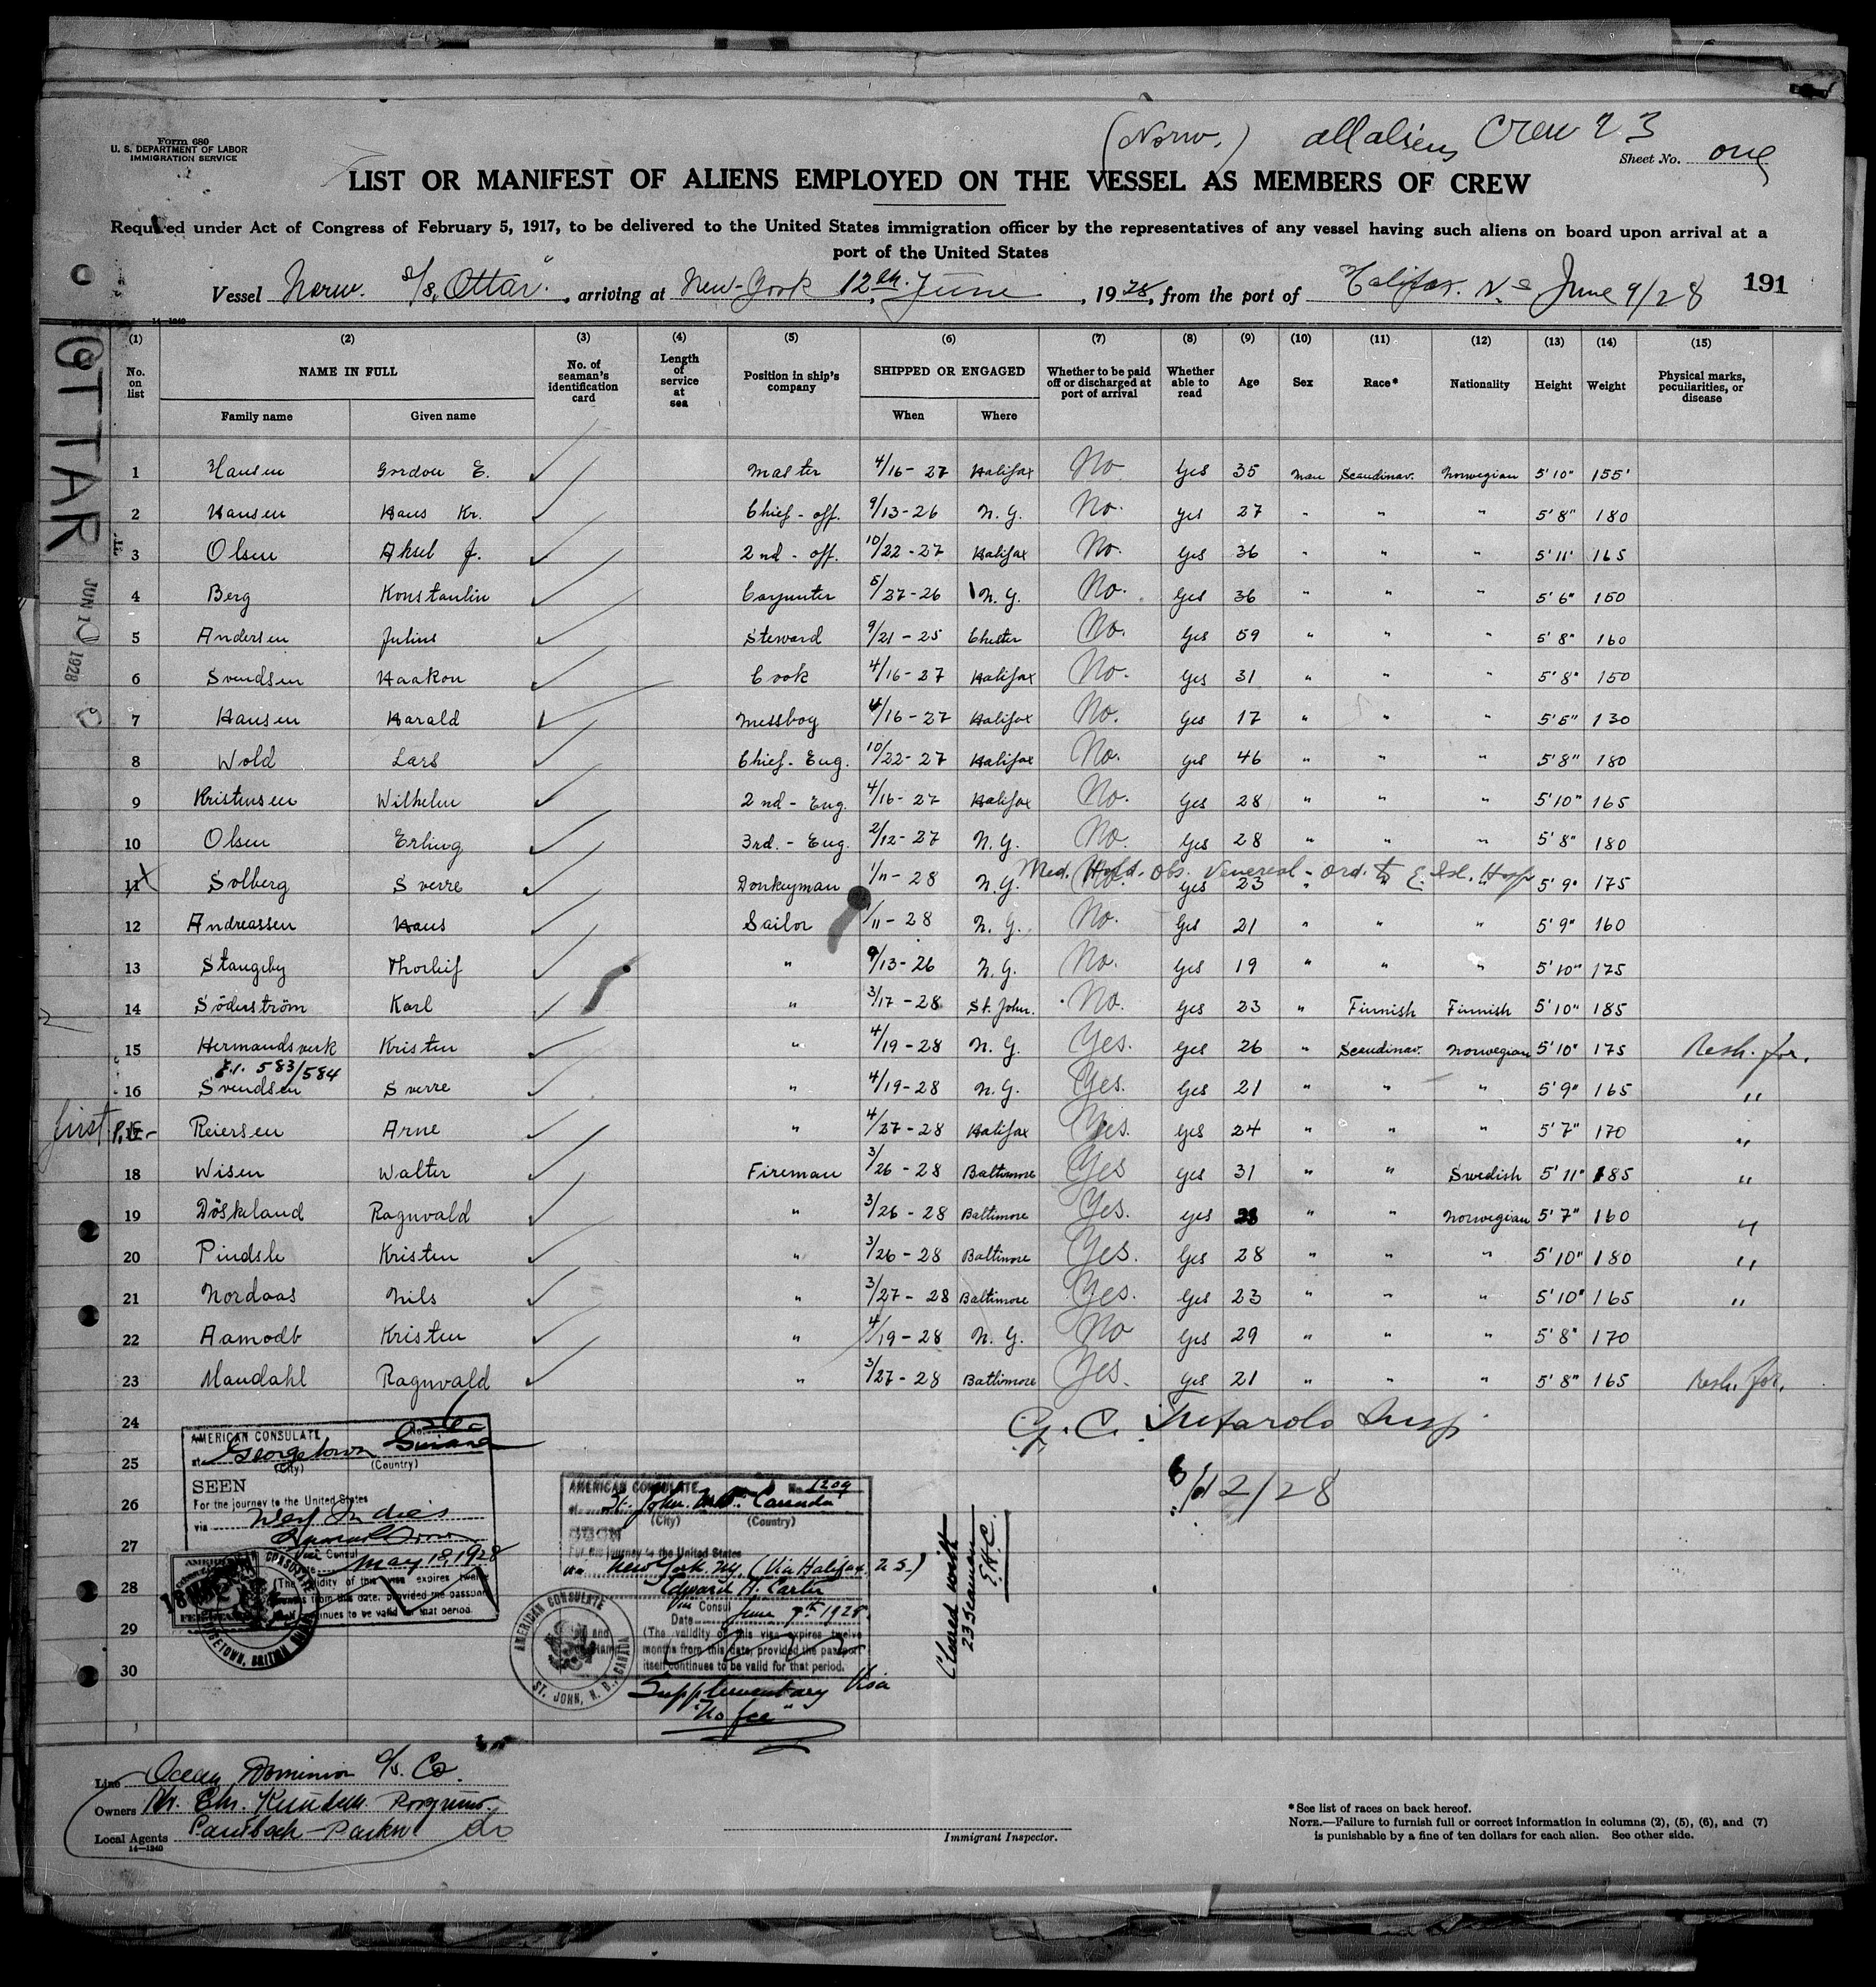 Form 680
U. S. DEPARTMENT OF LABOR
IMMIGRATION SERVICE
(Norw.) all aliens Crew 23
Sheet No. one
LIST OR MANIFEST OF ALIENS EMPLOYED ON THE VESSEL AS MEMBERS OF CREW
Required under Act of Congress of February 5, 1917, to be delivered to the United States immigration officer by the representatives of any vessel having such aliens on board upon arrival at a
port of the United States
Vessel Norw. S/S, Ottar", arriving at New-York 12th June, 1928, from the port of Halifax. N.S June 9/28 191
14—1240
OTTAR
JUN 1 1928
(1) (2) (3) (4) (5) (6) (7) (8) (9) (10) (11) (12) (13) (14) (15)
No. on list NAME IN FULL Family name Given name No. of seaman's identification card Length of service at sea Position in ship's company SHIPPED OR ENGAGED When Where Whether to be paid off or discharged at port of arrival Whether able to read Age Sex Race* Nationality Height Weight Physical marks, peculiarities, or disease
1 Hansen Gordon E. Master 4/16-27 Halifax No Yes 35 Man Scandinav. Norwegian 5'10" 155'
2 Hansen Hans Kr. Chief-off. 9/13-26 N.Y. No. Yes 27 " " " 5'8" 180
3 Olsen Aksel J. 2nd-off. 10/22-27 Halifax No. Yes 36 " " " 5'11" 165
4 Berg Konstantin Carpenter 5/27-26 N.Y. No. Yes 36 " " " 5'6" 150
5 Andersen Julius Steward 9/21-25 Chester No. Yes 59 " " " 5'8" 160
6 Svendsen Haakon Cook 4/16-27 Halifax No. Yes 31 " " " 5'8" 150
7 Hansen Harald Messboy 4/16-27 Halifax No. Yes 17 " " " 5'5" 130
8 Wold Lars Chief-Eng. 10/22-27 Halifax No. Yes 46 " " " 5'8" 180
9 Kristensen Wilhelm 2nd-Eng. 4/16-27 Halifax No. Yes 28 " " " 5'10" 165
10 Olsen Erling 3rd.-Eng. 2/12-27 N.Y. No. Yes 28 " " " 5'8" 180
Med. Hold. Obs. Venereal - ord. to E. Isl. Hosp
11 x Solberg Sverre Donkeyman 1/11-28 N.Y. No. Yes 23 " " " 5'9" 175
12 Andreassen Hans Sailor 1/11-28 N.Y. No. Yes 21 " " " 5'9" 160
13 Stangeby Thorleif " 9/13-26 N.Y. No. Yes 19 " " " 5'10" 175
14 Söderström Karl " 3/17-28 St. John. No. Yes 23 " Finnish Finnish 5'10" 185
15 Hermandsverk Kristen " 4/19-28 N.Y. Yes. Yes 26 " Scandinav. Norwegian 5'10" 175 Resh. for.
583/584
16 Svendsen Sverre " 4/19-28 N.Y. Yes. Yes 21 " " " 5'9" 165 "
first Reiersen Arne " 4/27-28 Halifax Yes. Yes 24 " " " 5'7" 170 "
18 Wisen Walter Fireman 3/26-28 Baltimore Yes Yes 31 " " Swedish 5'11" 185 "
19 Döskeland Ragnvald " 3/26-28 Baltimore Yes. Yes " " Norwegian 5'7" 160 "
20 Pindsle Kristen " 3/26-28 Baltimore Yes. Yes 28 " " " 5'10" 180 "
21 Nordaas Nils " 3/27-28 Baltimore Yes. Yes 23 " " " 5'10" 165 "
22 Aamodt Kristen " 4/19-28 N.Y. No Yes 29 " " " 5'8" 170
23 Mandahl Ragnvald " 3/27-28 Baltimore Yes. Yes 21 " " " 5'8" 165 Resh. for.
24
25
26
27
28
29
30
6/12/28
AMERICAN CONSULATE No.
at Georgetown Guiana
(City) (Country)
SEEN
For the journey to the United States
via West Indies
Vice Consul
Date May 18, 1928
(The validity of this visa expires twelve
months from this date, provided the passport
itself continues to be valid for that period.
AMERICAN CONSULATE No. 1209
at St. John. N.B. Canada
(City) (Country)
For the journey to the United States
via New York. NY. (Via Halifax. N.S.)
Edward A. Carter
Vice Consul
Date June 7th 1928.
(The validity of this visa expires twelve
months from this date, provided the passport
itself continues to be valid for that period.
AMERICAN CONSULATE
ST. JOHN, N. B., CANADA
Supplementary Visa
"No fee"
Cleared with
23 seaman
E.H.C.
Line Ocean Dominion S/S. Co.
Owners
Local Agents
14—1240
Immigrant Inspector.
*See list of races on back hereof.
NOTE.—Failure to furnish full or correct information in columns (2), (5), (6), and (7)
is punishable by a fine of ten dollars for each alien. See other side.